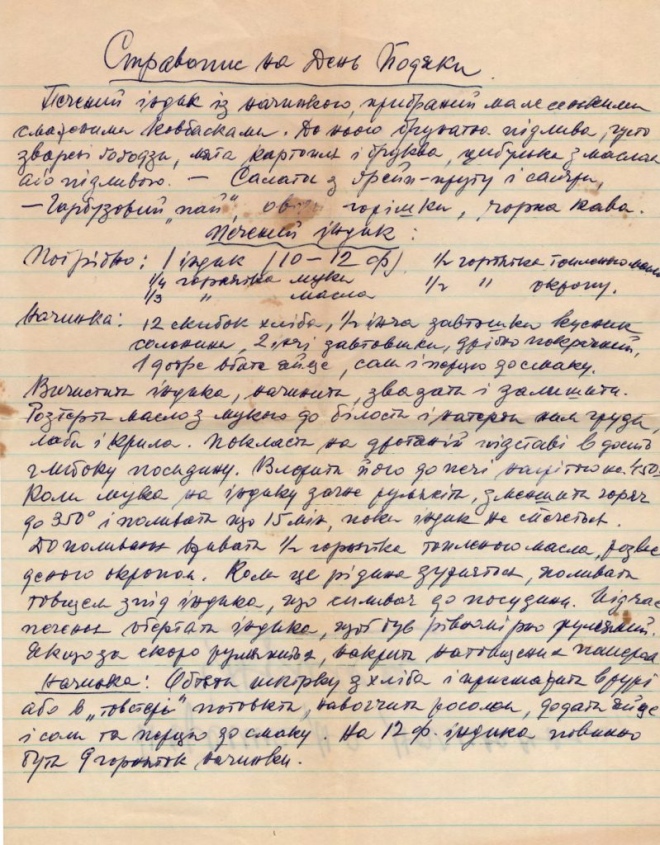 Справопис на День Подяки
Печений індик із начинкою, прибраний малесенькими
смаженими ковбасками. До нього брунатна підлива, густо
зварені боґодзи, мята картопля і бруква, цибулька з маслом
або підливою. — Салата з ґрейп-фруту і селери,
— Гарбузовий „пай", горішки, чорна кава.
Печений індик:
Потрібно: 1 індик (10–12 ф.) 1/2 горнятка топленого масла
1/4 горнятка муки 1/2 " окропу.
1/3 " масла
Начинка: 12 скибок хліба, 1/2 інча завтовшки кусник
солонини, 2 інчі завтовшки, дрібно покраяний,
1 добре вбите яйце, соли і перцю до смаку.
Вичистити індика, начинити, звязати і залишити.
Розтерти масло з мукою до білости і натерти ним груди,
лаби і крила. Покласти на дротяній підставі в досить
глибоку посудину. Вложити його до печі нагрітої на 450°
Коли мука на індику зачне румяніти, зменшити горяч
до 350° і поливати що 15 мін., поки індик не спечеться.
До поливання вживати 1/2 горнятка топленого масла, розве
деного окропом. Коли ця рідина зужиється, поливати
товщем з-під індика, що спливає до посудини. Підчас
печення обертати індика, щоб був рівномірно румяний.
Якщо за скоро румяниться, накрити натовщеним папером.
Начинка: Обтяти шкірку з хліба і присмажити в друті
або в „товстері" потовкти, намочити росолом, додати яйце
і соли та перцю до смаку. На 12 ф. індика повинно
бути 9 горняток начинки.